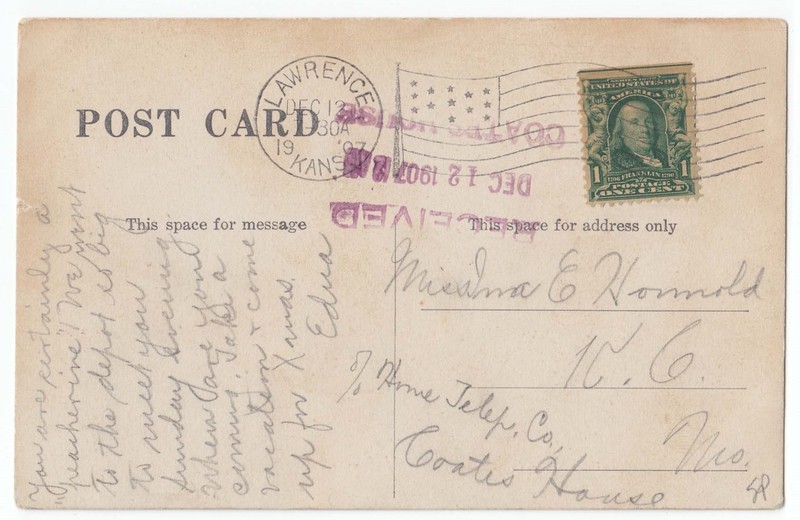 POST CARD
LAWRENCE
DEC 12
30A
19 '07
KANS
SERIES 1902
UNITED STATES OF
AMERICA
1 1706 FRANKLIN 1790 1
POSTAGE
ONE CENT
COATES HOUSE
DEC 12 1907
RECEIVED
This space for message
This space for address only
You are certainly a
"peacherine"! We went
to the depot is big
to meet you
Sunday evening
When are you
coming. Take a
vacation & come
up for Xmas.
Edna
Miss Ina E Honnold
K. C.
c/o Home Telep. Co,
Mo.
Coates House